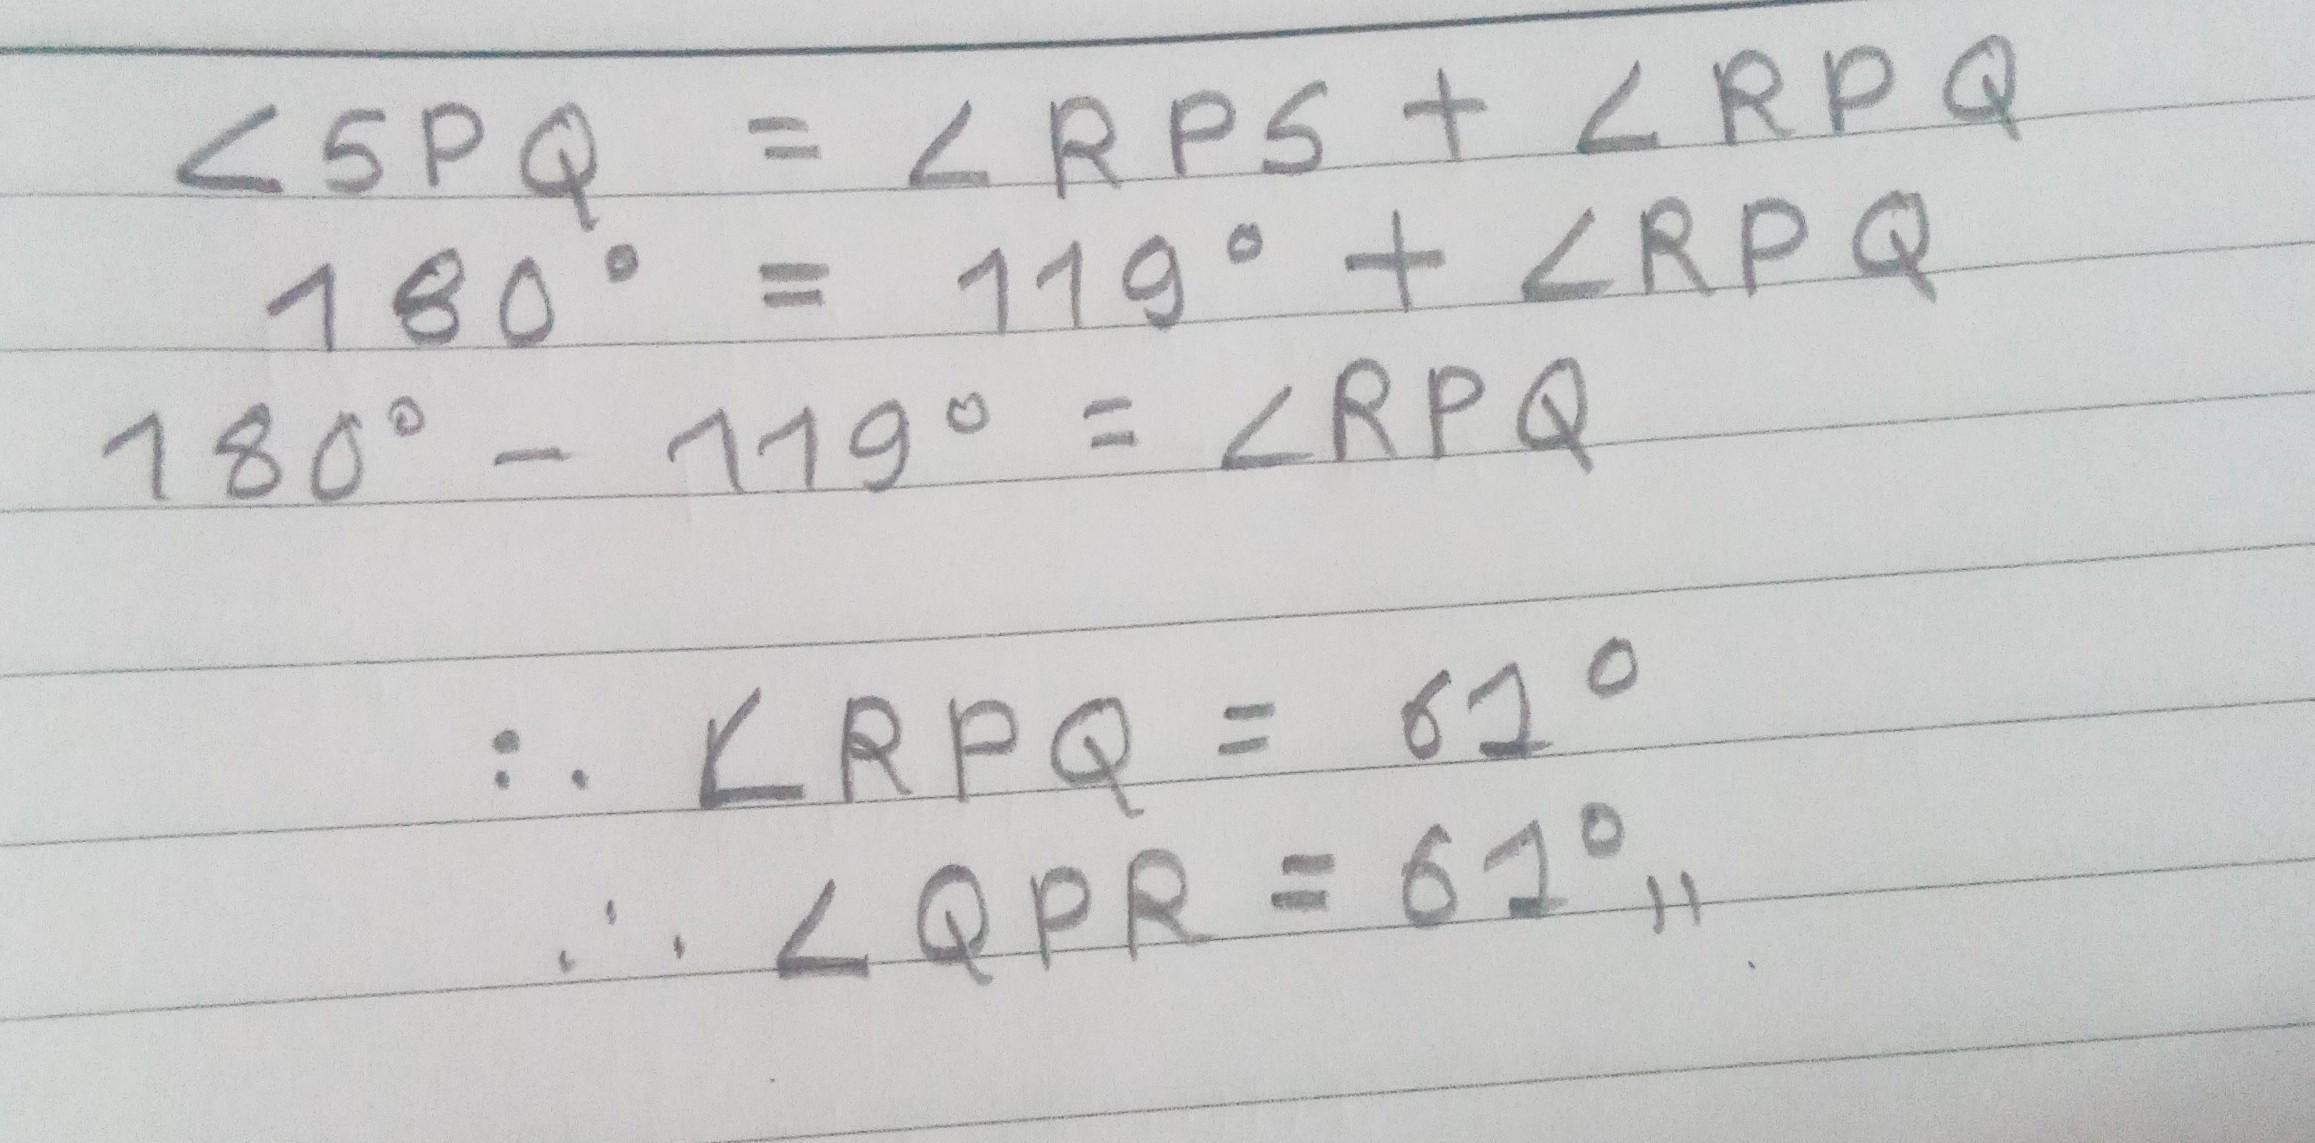 ∠SPQ = ∠RPS + ∠RPQ
180° = 119° + ∠RPQ
180° - 119° = ∠RPQ
∴ ∠RPQ = 61°
∴ ∠QPR = 61°,,